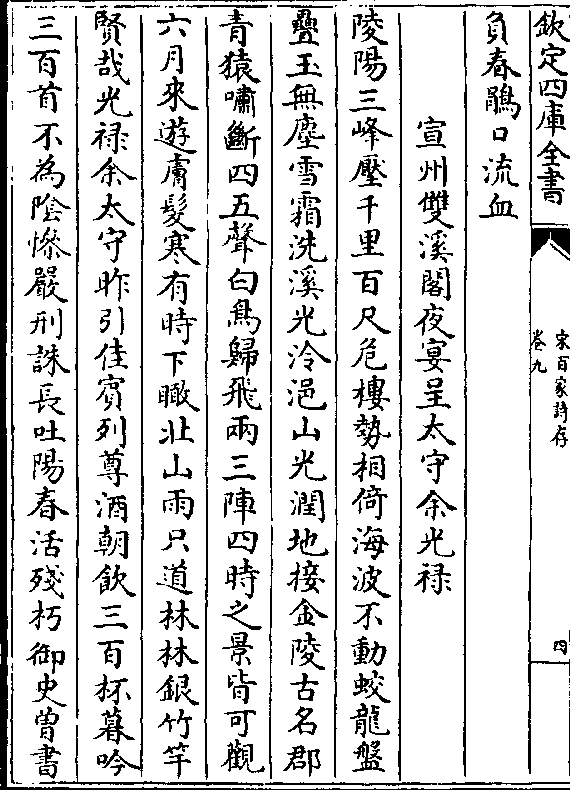 欽定四庫全書
宋百家詩存
卷九
四
負春鵑口流血
宣州雙溪閣夜宴呈太守余光禄
陵陽三峰壓千里百尺危樓勢相倚海波不動蛟龍盤
疊玉無塵雪霜洗溪光泠浥山光潤地接金陵古名郡
青猿嘯斷四五聲白鳥歸飛兩三陣四時之景皆可觀
六月來遊膚髮寒有時下瞰北山雨只道林林銀竹竿
賢哉光禄余太守昨引佳賓列尊酒朝飲三百杯暮吟
三百首不為陰慘嚴刑誅長吐陽春活殘朽御史曽書